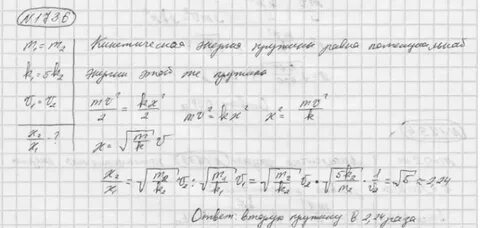 N 1736
m₁ = m₂ Кинетическая энергия пружины равна потенциальной
k₁ = 5k₂ энергии этой же пружины
v₁ = v₂ mv²/2 = kx²/2 mv² = kx² x² = mv²/k
x₂/x₁ - ? x = √(m/k) v
x₂/x₁ = √(m₂/k₂) v₂ : √(m₁/k₁) v₁ = √(m₂/k₂) v₂ · √(5k₂/m₂) · 1/v₂ = √5 = 2,24
Ответ: вторую пружину в 2,24 раза